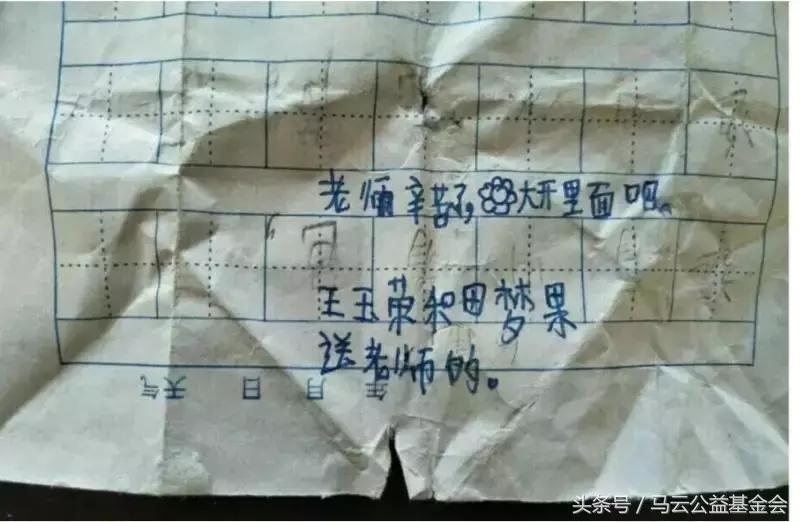 老师辛苦了,大开里面吧。
王玉荣和田梦果
送老师的。
年 月 日 天气
头条号 / 马云公益基金会